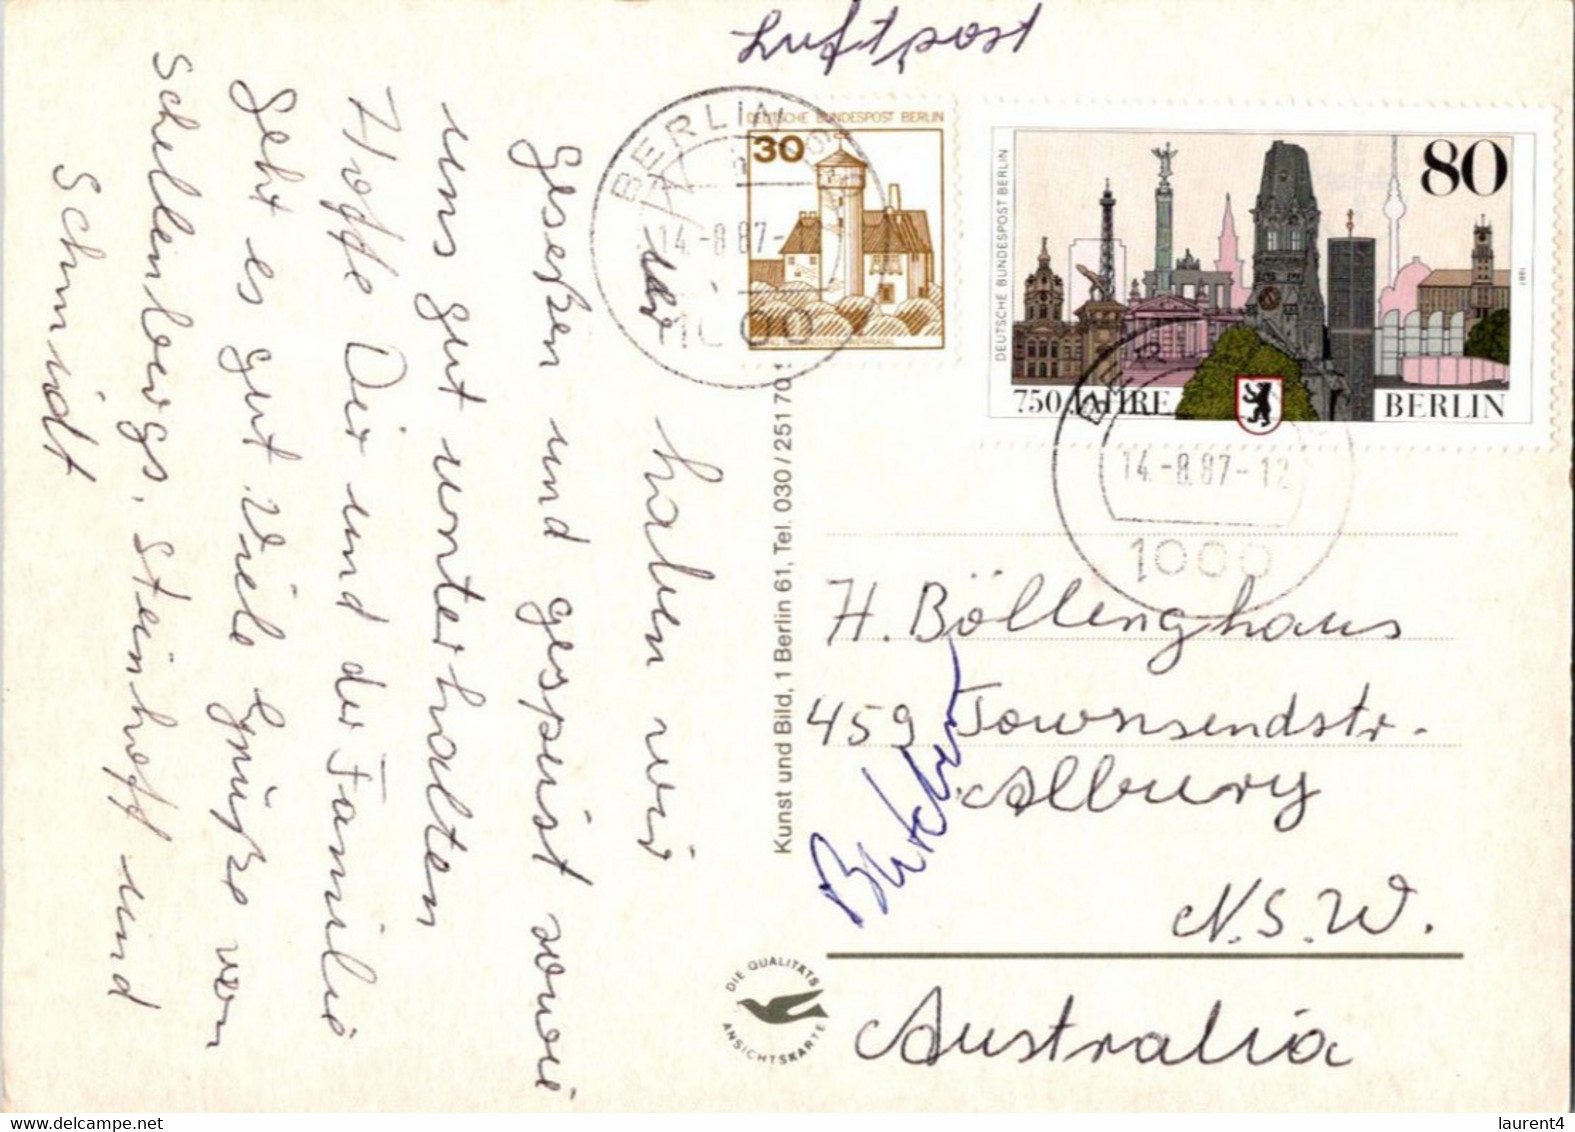 Luftpost
DEUTSCHE BUNDESPOST BERLIN
30
DEUTSCHE BUNDESPOST BERLIN
80
1987
750 JAHRE BERLIN
BERLIN
14.-8.87-
1000
BERLIN
14.-8.87-12
1000
haben wir
gegeßen und gespeist sowie
uns gut unterhalten
Hoffe Dir und der Familie
geht es gut. Viele Grüße von
Schellenbergs, Steinhoff und
Schmidt
Kunst und Bild, 1 Berlin 61, Tel. 030/251 70
H. Böllinghaus
459 Townsendstr.
Albury
N.S.W.
Australia
DIE QUALITÄTS
ANSICHTSKARTE
laurent4